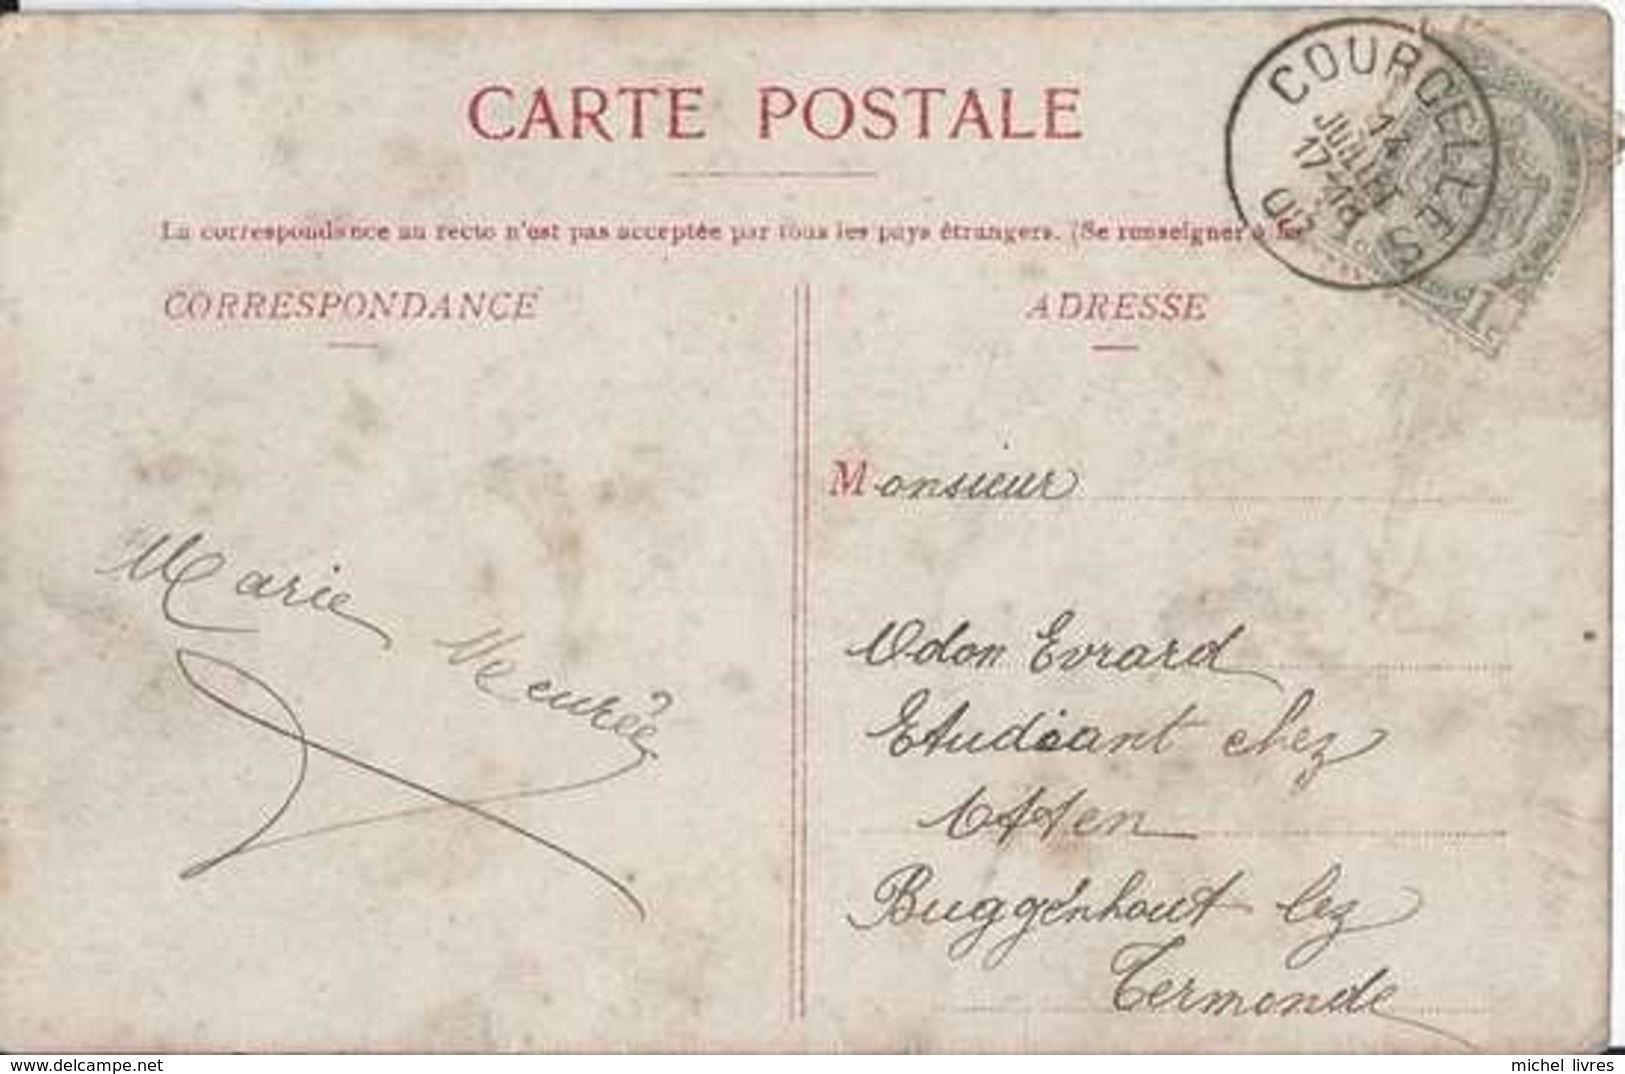 CARTE POSTALE
La correspondance au recto n'est pas acceptée par tous les pays étrangers. (Se renseigner à
CORRESPONDANCE
ADRESSE
COURCELLES
14
JUILLET
17-18
08
1
Marie
Monsieur
Odon Evrard
Etudiant chez
Buggenhout lez
Termonde
michel livres